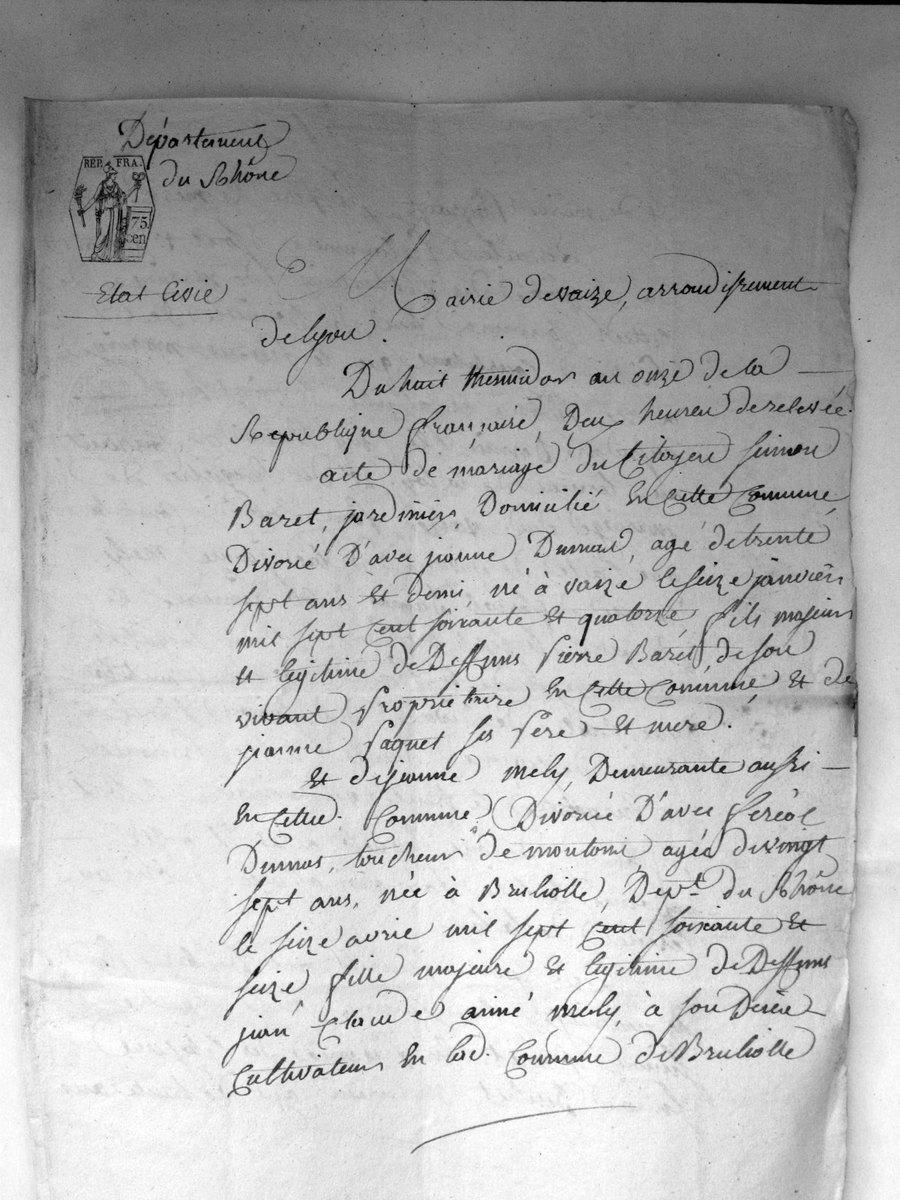 Département
REP. FRA.
du Rhône
75
cen
Etat Civil
Mairie devaize, arrondissement
de lyon.
Du huit thermidor an onze de la
Republique françaisé, Deux heures derelevée.
acte de mariagé du Citoyen simon
Baret, jardinier, Domicilié En Cette Commune,
Divorcé D'avec jeanne Dumas, agé detrente
sept ans et demi né à vaizé leseize janvier
mil sept Cent soixante et quatorze fils majeur
et legitime de Deffunts pierre Baret de son
vivant proprietaire En Cette Commune et de
jeanne paquet ses pere et mere.
et dejeanne mely, Demeurante aussi
En Cette Commune, Divorcée D'avec fereol
Dumas, toucheur de moutons, agée devingt
sept ans, née à Brullolle, Dept. du Rhône
le seize avril mil sept Cent soixante et
seize fille majeure et legitime de Deffunts
jean Claude aimé mely, à son Décè
Cultivateur En lad. Commune de Brullolle